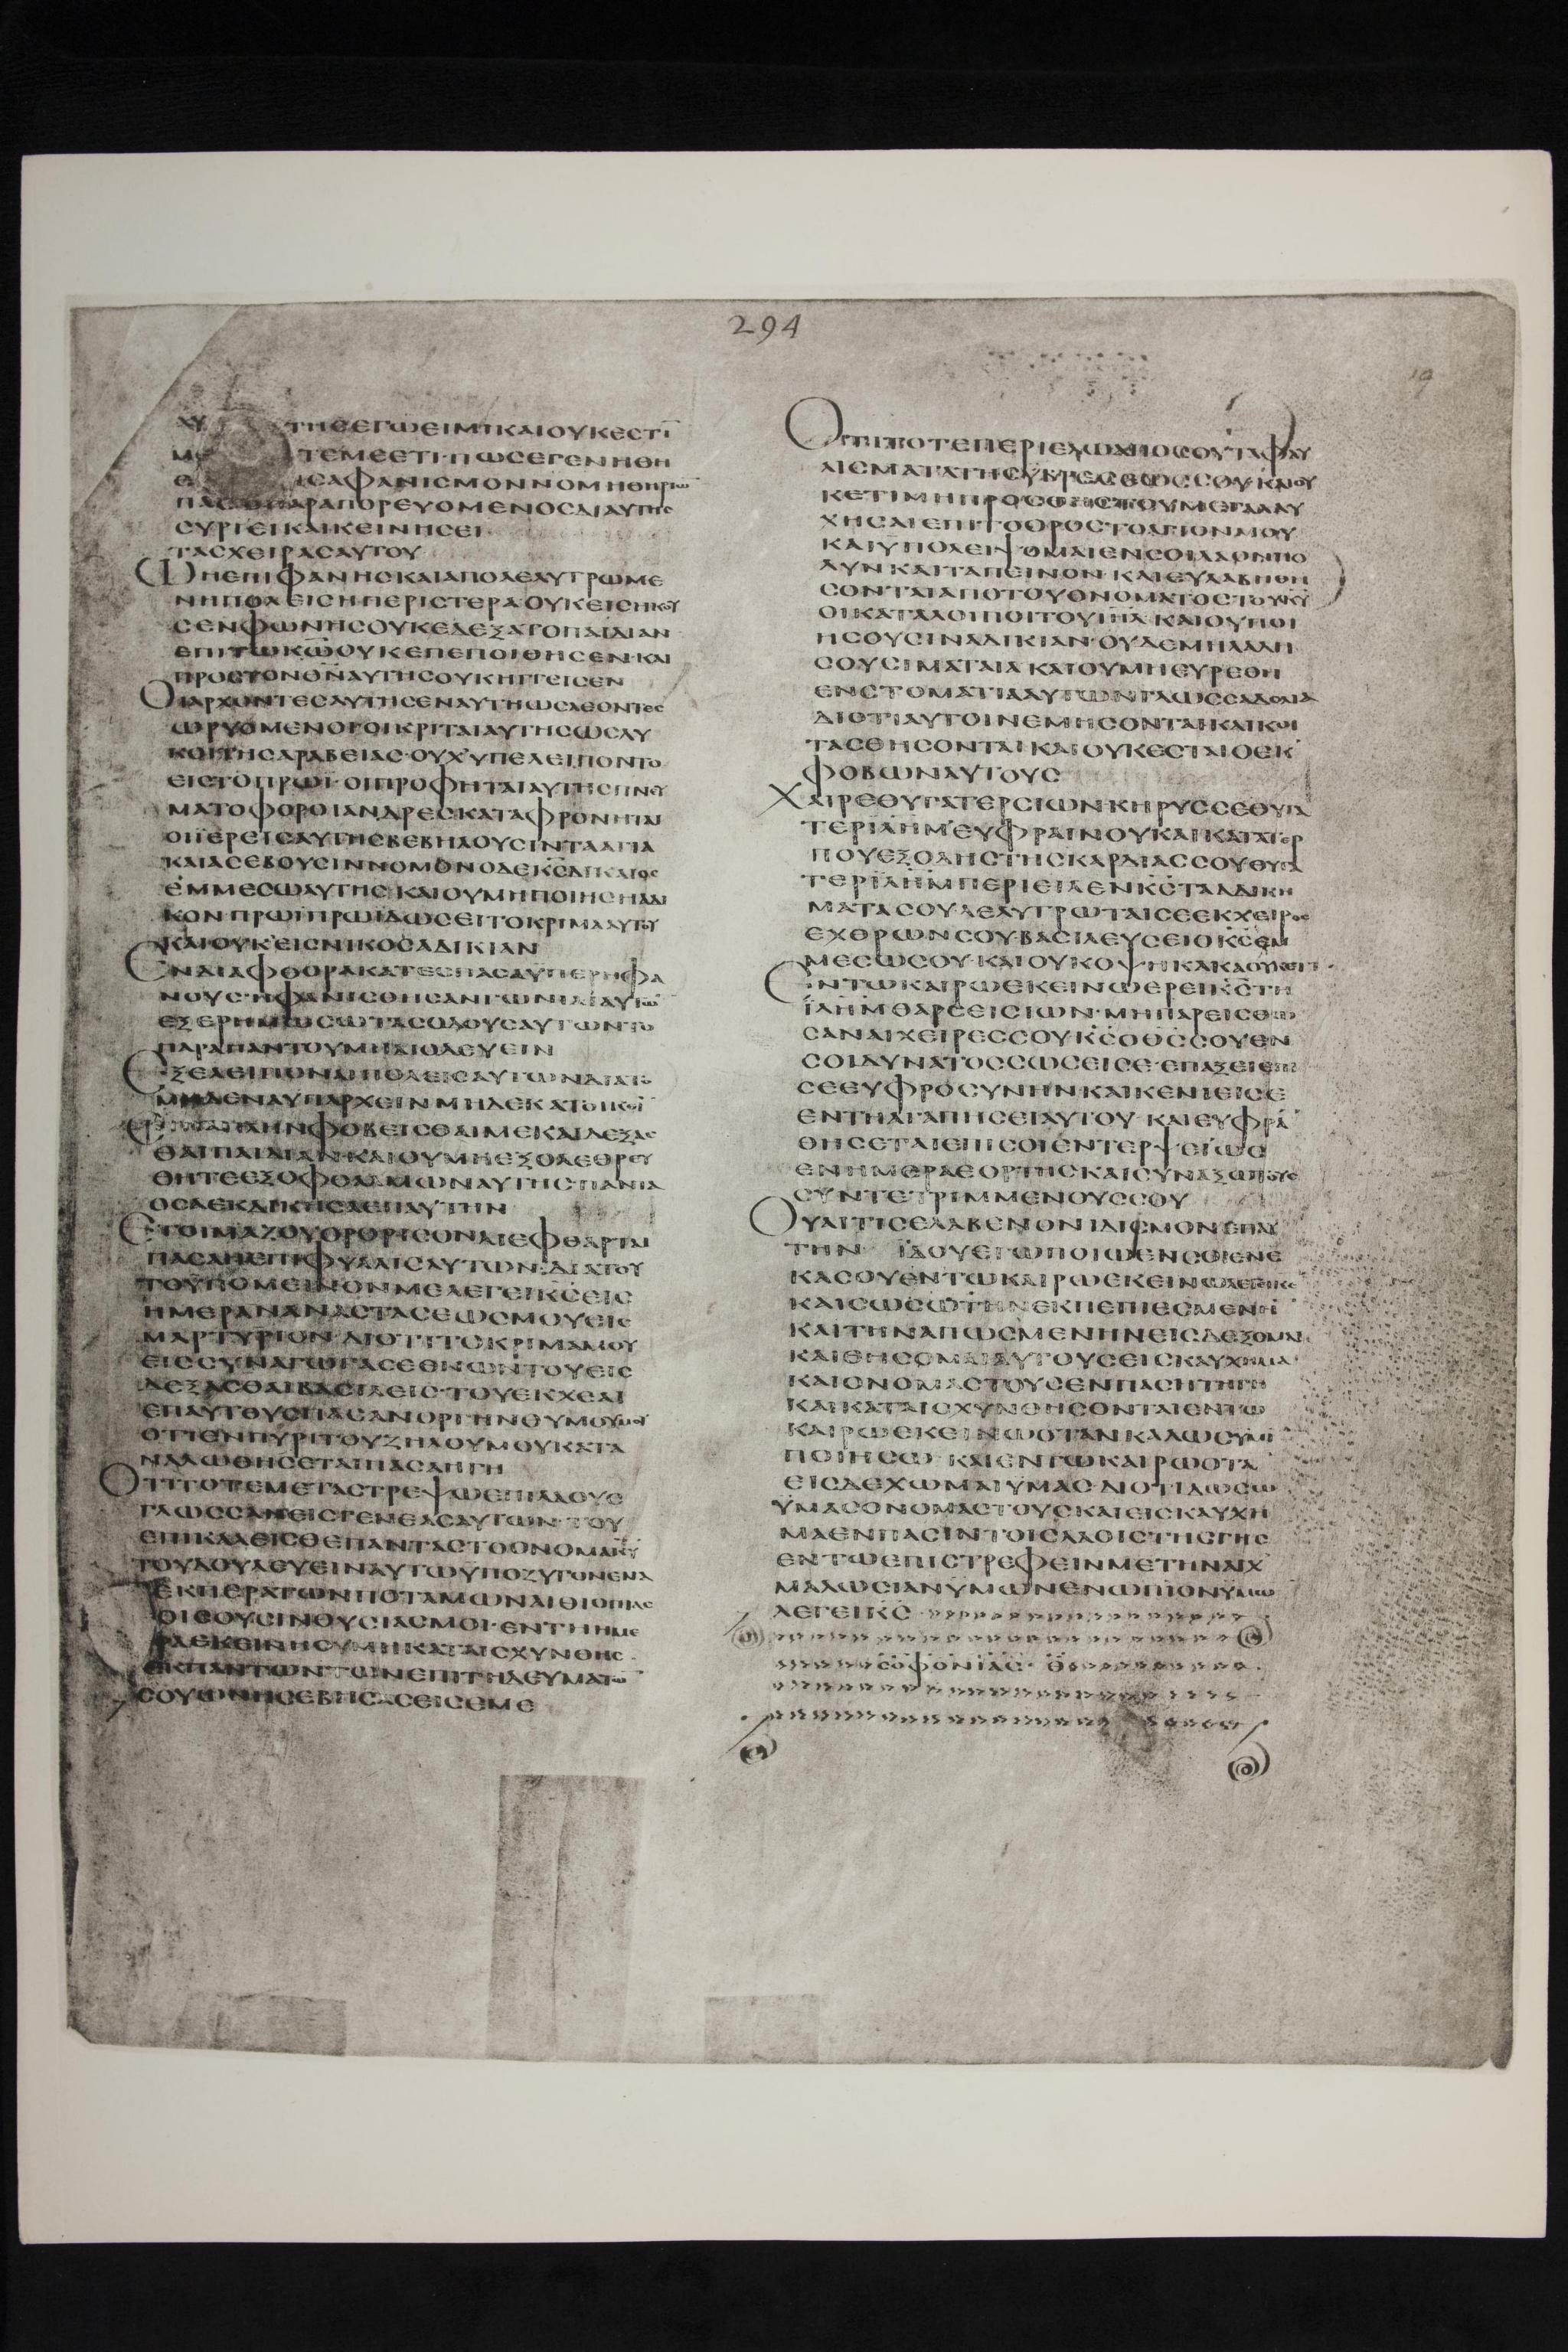 294
19
ΤΗϹΕΓΩΕΙΜΙΚΑΙΟΥΚΕϹΤΙ̅
ΤΕΜΕΕΤΙ·ΠΩϹΕΓΕΝΗΘΗ
ΙϹΑΦΑΝΙϹΜΟΝΝΟΜΗΘΗΡΙΩ̅
ΠΑϹΟΠΑΡΑΠΟΡΕΥΟΜΕΝΟϹΔΙΑΥΤΗϹ
ϹΥΡΙΕΙΚΑΙΚΕΙΝΗϹΕΙ
ΤΑϹΧΕΙΡΑϹΑΥΤΟΥ
ΩΗΕΠΙΦΑΝΗϹΚΑΙΑΠΟΛΕΛΥΤΡΩΜΕ
ΝΗΠΟΛΕΙϹΗΠΕΡΙϹΤΕΡΑΟΥΚΕΙϹΗΚΟΥ
ϹΕΝΦΩΝΗϹΟΥΚΕΔΕΞΑΤΟΠΑΙΔΙΑΝ
ΕΠΙΤΩΚ̅Ω̅ΟΥΚΕΠΕΠΟΙΘΗϹΕΝ·ΚΑΙ
ΠΡΟϹΤΟΝΘ̅Ν̅ΑΥΤΗϹΟΥΚΗΓΓΕΙϹΕΝ
ΟΙΑΡΧΟΝΤΕϹΑΥΤΗϹΕΝΑΥΤΗΩϹΛΕΟΝΤΕϹ
ΩΡΥΟΜΕΝΟΙ·ΟΙΚΡΙΤΑΙΑΥΤΗϹΩϹΛΥ
ΚΟΙΤΗϹΑΡΑΒΕΙΑϹ·ΟΥΧΫΠΕΛΕΙΠΟΝΤΟ
ΕΙϹΤΟΠΡΩΪ·ΟΙΠΡΟΦΗΤΑΙΑΥΤΗϹΠΝΥ
ΜΑΤΟΦΟΡΟΙΑΝΔΡΕϹΚΑΤΑΦΡΟΝΗΤΑΙ
ΟΙΪΕΡΕΙϹΑΥΤΗϹΒΕΒΗΛΟΥϹΙΝΤΑΑΓΙΑ
ΚΑΙΑϹΕΒΟΥϹΙΝΝΟΜΟΝΟΔΕΚ̅Ϲ̅ΔΙΚΑΙΟϹ
ΕΜΜΕϹΩΑΥΤΗϹ·ΚΑΙΟΥΜΗΠΟΙΗϹΗΑΔΙ
ΚΟΝΠΡΩΪΠΡΩΪΔΩϹΕΙΤΟΚΡΙΜΑΑΥΤΟΥ
ΚΑΙΟΥΚΕΙϹΝΙΚΟϹΑΔΙΚΙΑΝ
ΕΝΔΙΑΦΘΟΡΑΚΑΤΕϹΠΑϹΑΫΠΕΡΗΦΑ
ΝΟΥϹ·ΗΦΑΝΙϹΘΗϹΑΝΓΩΝΙΑΙΑΥΤΩ̅
ΕΞΕΡΗΜΩϹΩΤΑϹΟΔΟΥϹΑΥΤΩΝΤΟ
ΠΑΡΑΠΑΝΤΟΥΜΗΔΙΟΔΕΥΕΙΝ
ΕΞΕΛΕΙΠΟΝΑΙΠΟΛΕΙϹΑΥΤΩΝΔΙΑΤΟ
ΜΗΔΕΝΑΫΠΑΡΧΕΙΝΜΗΔΕΚΑΤΟΙΚΕΙ̅
ΠΛΗΝΦΟΒΕΙϹΘΑΙΜΕΚΑΙΔΕΞΑϹ
ΘΑΙΠΑΙΔΙΑΝ·ΚΑΙΟΥΜΗΕΞΟΛΕΘΡΕΥ
ΘΗΤΕΕΞΟΦΘΑΛΜΩΝΑΥΤΗϹΠΑΝΤΑ
ΟϹΑΕΚΔΙΚΗϹΑΕΠΑΥΤΗΝ
ΕΤΟΙΜΑΖΟΥΟΡΘΡΙϹΟΝΔΙΕΦΘΑΡΤΑΙ
ΠΑϹΑΗΕΠΙΦΥΛΛΙϹΑΥΤΩΝ·ΔΙΑΤΟΥ
ΤΟΫΠΟΜΕΙΝΟΝΜΕΛΕΓΕΙΚ̅Ϲ̅ΕΙϹ
ΗΜΕΡΑΝΑΝΑϹΤΑϹΕΩϹΜΟΥΕΙϹ
ΜΑΡΤΥΡΙΟΝ·ΔΙΟΤΙΤΟΚΡΙΜΑΜΟΥ
ΕΙϹϹΥΝΑΓΩΓΑϹΕΘΝΩΝΤΟΥΕΙϹ
ΔΕΞΑϹΘΑΙΒΑϹΙΛΕΙϹ·ΤΟΥΕΚΧΕΑΙ
ΕΠΑΥΤΟΥϹΠΑϹΑΝΟΡΓΗΝΘΥΜΟΥΜΟΥ
ΟΤΙΕΝΠΥΡΙΤΟΥΖΗΛΟΥΜΟΥΚΑΤΑ
ΝΑΛΩΘΗϹΕΤΑΙΠΑϹΑΗΓΗ
ΟΤΙΤΟΤΕΜΕΤΑϹΤΡΕΨΩΕΠΙΛΑΟΥϹ
ΓΛΩϹϹΑΝΕΙϹΓΕΝΕΑϹΑΥΤΩΝ·ΤΟΥ
ΕΠΙΚΑΛΕΙϹΘΕΠΑΝΤΑϹΤΟΟΝΟΜΑΚ̅Υ̅
ΤΟΥΔΟΥΛΕΥΕΙΝΑΥΤΩΫΠΟΖΥΓΟΝΕΝΑ
ΕΚΠΕΡΑΤΩΝΠΟΤΑΜΩΝΑΙΘΙΟΠΙΑϹ
ΟΙϹΟΥϹΙΝΘΥϹΙΑϹΜΟΙ·ΕΝΤΗΗΜΕ
ΡΑΕΚΕΙΝΗΟΥΜΗΚΑΤΑΙϹΧΥΝΘΗϹ
ΕΚΠΑΝΤΩΝΤΩΝΕΠΙΤΗΔΕΥΜΑΤΩ̅
ϹΟΥΩΝΗϹΕΒΗϹΑϹΕΙϹΕΜΕ
ΟΤΙΤΟΤΕΠΕΡΙΕΛΩΑΠΟϹΟΥΤΑΦΑΥ
ΛΙϹΜΑΤΑΤΗϹΫΒΡΕΩϹϹΟΥ·ΚΑΙΟΥ
ΚΕΤΙΜΗΠΡΟϹΘΗϹΤΟΥΜΕΓΑΛΑΥ
ΧΗϹΑΙΕΠΙΤΟΟΡΟϹΤΟΑΓΙΟΝΜΟΥ
ΚΑΙΫΠΟΛΕΙΨΟΜΑΙΕΝϹΟΙΛΑΟΝΠΟ
ΛΥΝΚΑΙΤΑΠΕΙΝΟΝ·ΚΑΙΕΥΛΑΒΗΘΗ
ϹΟΝΤΑΙΑΠΟΤΟΥΟΝΟΜΑΤΟϹΤΟΥΚ̅Υ̅
ΟΙΚΑΤΑΛΟΙΠΟΙΤΟΥΙ̅Η̅Λ̅·ΚΑΙΟΥΠΟΙ
ΗϹΟΥϹΙΝΑΔΙΚΙΑΝ·ΟΥΔΕΜΗΛΑΛΗ
ϹΟΥϹΙΜΑΤΑΙΑ·ΚΑΙΟΥΜΗΕΥΡΕΘΗ
ΕΝϹΤΟΜΑΤΙΑΥΤΩΝΓΛΩϹϹΑΔΟΛΙΑ
ΔΙΟΤΙΑΥΤΟΙΝΕΜΗϹΟΝΤΑΙΚΑΙΚΟΙ
ΤΑϹΘΗϹΟΝΤΑΙ·ΚΑΙΟΥΚΕϹΤΑΙΟΕΚ
ΦΟΒΩΝΑΥΤΟΥϹ
ΧΑΙΡΕΘΥΓΑΤΕΡϹΙΩΝΚΗΡΥϹϹΕΘΥΓΑ
ΤΕΡΙΛ̅Η̅Μ̅·ΕΥΦΡΑΙΝΟΥΚΑΙΚΑΤΑΤΕΡ
ΠΟΥΕΞΟΛΗϹΤΗϹΚΑΡΔΙΑϹϹΟΥΘΥΓΑ
ΤΕΡΙΛ̅Η̅Μ̅ΠΕΡΙΕΙΛΕΝΚ̅Ϲ̅ΤΑΑΔΙΚΗ
ΜΑΤΑϹΟΥ·ΛΕΛΥΤΡΩΤΑΙϹΕΕΚΧΕΙΡΟϹ
ΕΧΘΡΩΝϹΟΥ·ΒΑϹΙΛΕΥϹΕΙΟΚ̅Ϲ̅ΕΜ
ΜΕϹΩϹΟΥ·ΚΑΙΟΥΚΟΨΗΚΑΚΑΟΥΚΕΤΙ
ΕΝΤΩΚΑΙΡΩΕΚΕΙΝΩΕΡΕΙΚ̅Ϲ̅ΤΗ
ΙΛ̅Η̅Μ̅ΘΑΡϹΕΙϹΙΩΝ·ΜΗΠΑΡΕΙϹΘΩ
ϹΑΝΑΙΧΕΙΡΕϹϹΟΥΚ̅Ϲ̅ΟΘ̅Ϲ̅ϹΟΥΕΝ
ϹΟΙΔΥΝΑΤΟϹϹΩϹΕΙϹΕ·ΕΠΑΞΕΙΕΠΙ
ϹΕΕΥΦΡΟϹΥΝΗΝΚΑΙΚΕΝΙΕΙϹΕ
ΕΝΤΗΑΓΑΠΗϹΕΙΑΥΤΟΥ·ΚΑΙΕΥΦΡΑ̅
ΘΗϹΕΤΑΙΕΠΙϹΟΙΕΝΤΕΡΨΕΙΩϹ
ΕΝΗΜΕΡΑΕΟΡΤΗϹΚΑΙϹΥΝΑΞΩΤΟΥϹ
ϹΥΝΤΕΤΡΙΜΜΕΝΟΥϹϹΟΥ
ΟΥΑΙΤΙϹΕΛΑΒΕΝΟΝΙΔΙϹΜΟΝΕΠΑΥ
ΤΗΝ ΪΔΟΥΕΓΩΠΟΙΩΕΝϹΟΙΕΝΕ
ΚΑϹΟΥΕΝΤΩΚΑΙΡΩΕΚΕΙΝΩΛΕΓΕΙΚ̅Ϲ̅
ΚΑΙϹΩϹΩΤΗΝΕΚΠΕΠΙΕϹΜΕΝΗ̅
ΚΑΙΤΗΝΑΠΩϹΜΕΝΗΝΕΙϹΔΕΞΟΜΑΙ
ΚΑΙΘΗϹΟΜΑΙΑΥΤΟΥϹΕΙϹΚΑΥΧΗΜΑ
ΚΑΙΟΝΟΜΑϹΤΟΥϹΕΝΠΑϹΗΤΗΓΗ
ΚΑΙΚΑΤΑΙϹΧΥΝΘΗϹΟΝΤΑΙΕΝΤΩ
ΚΑΙΡΩΕΚΕΙΝΩΟΤΑΝΚΑΛΩϹΥΜΙ̅
ΠΟΙΗϹΩ·ΚΑΙΕΝΤΩΚΑΙΡΩΟΤΑ̅
ΕΙϹΔΕΧΩΜΑΙΫΜΑϹ·ΔΙΟΤΙΔΩϹΩ
ΫΜΑϹΟΝΟΜΑϹΤΟΥϹΚΑΙΕΙϹΚΑΥΧΗ
ΜΑΕΝΠΑϹΙΝΤΟΙϹΛΑΟΙϹΤΗϹΓΗϹ
ΕΝΤΩΕΠΙϹΤΡΕΦΕΙΝΜΕΤΗΝΑΙΧ
ΜΑΛΩϹΙΑΝΫΜΩΝΕΝΩΠΙΟΝΫΜΩ̅
ΛΕΓΕΙΚ̅Ϲ̅
ϹΟΦΟΝΙΑϹ·Θ